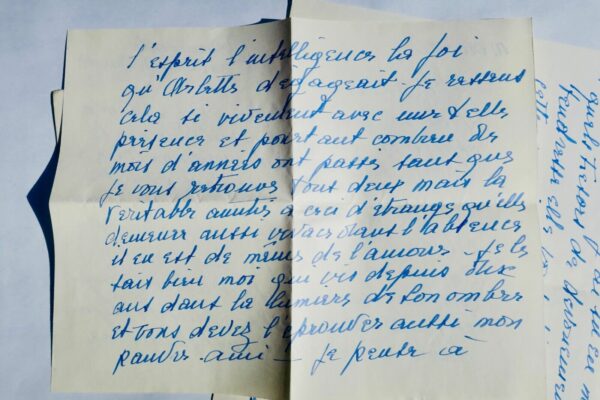 l'esprit l'intelligence la foi
qu'Arlette dégageait. Je ressens
cela si vivement avec une telle
présence et pourtant combien de
mois d'années ont passé sans que
je vous retrouve tous deux mais la
véritable amitié a ceci d'étrange qu'elle
demeure aussi vivace dans l'absence
il en est de même de l'amour. Je le
sais bien moi qui vis depuis dix
ans dans la lumière de son ombre
et vous devez l'éprouver aussi mon
pauvre ami — Je pense à
quels trésors de
tendresse elle